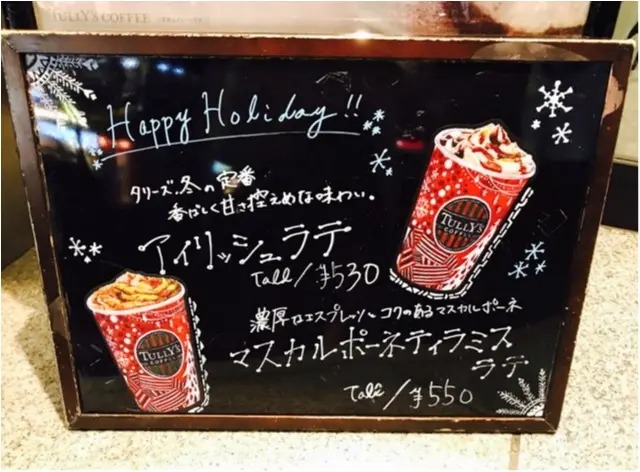 TULLY'S COFFEE
Happy Holiday!!
タリーズ、冬の定番
香ばしく甘さ控えめな味わい。
アイリッシュラテ
Tall/¥530
TULLY'S
COFFEE
濃厚なエスプレッソとコクのあるマスカルポーネ
マスカルポーネティラミス
ラテ
Tall/¥550
TULLY'S
COFFEE